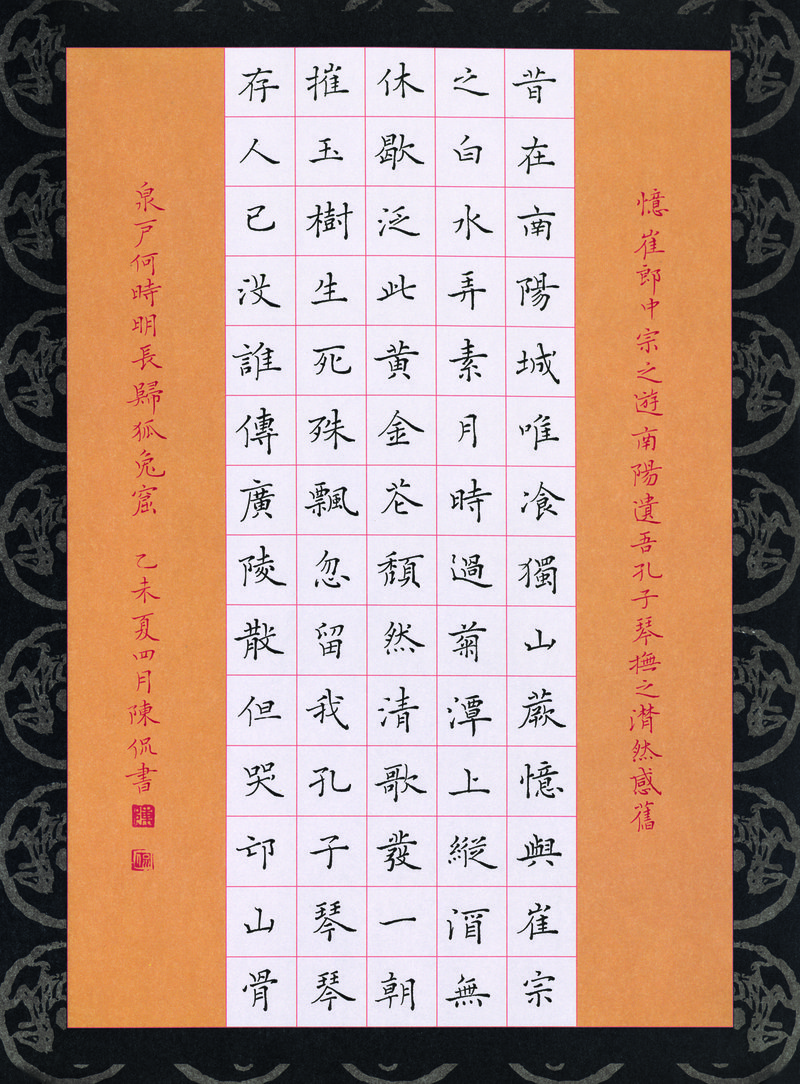 憶崔郎中宗之遊南陽遺吾孔子琴撫之潸然感舊
昔在南陽城唯飡獨山蕨憶與崔宗
之白水弄素月時過菊潭上縱酒無
休歇泛此黃金花頹然清歌發一朝
摧玉樹生死殊飄忽留我孔子琴琴
存人已沒誰傳廣陵散但哭邙山骨
泉戶何時明長歸狐兔窟 乙未夏四月陳侃書